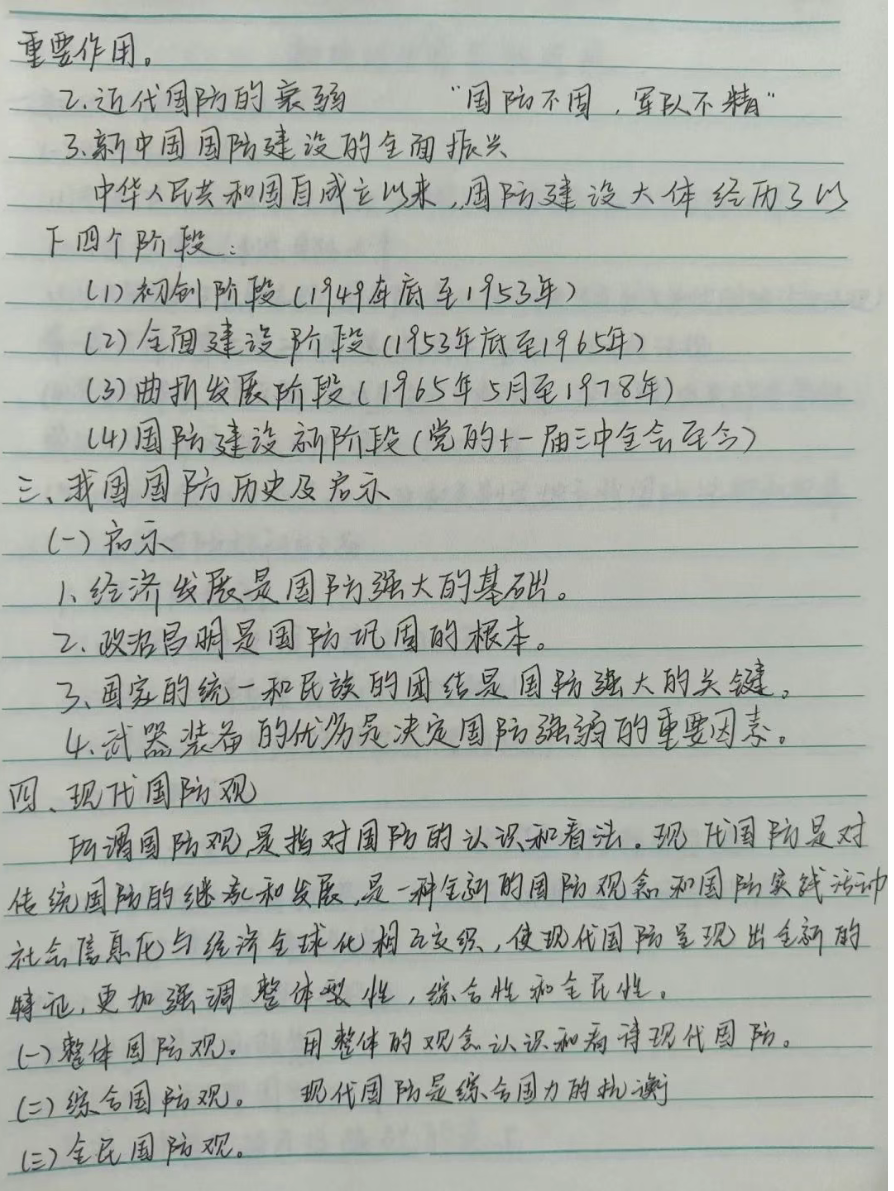 重要作用。
2.近代国防的衰弱 “国防不固，军队不精”
3.新中国国防建设的全面振兴
中华人民共和国自成立以来,国防建设大体经历了以
下四个阶段：
(1)初创阶段(1949年底至1953年)
(2)全面建设阶段(1953年底至1965年)
(3)曲折发展阶段(1965年5月至1978年)
(4)国防建设新阶段(党的十一届三中全会至今)
三、我国国防历史及启示
(一)启示
1、经济发展是国防强大的基础。
2、政治昌明是国防巩固的根本。
3、国家的统一和民族的团结是国防强大的关键。
4、武器装备的优劣是决定国防强弱的重要因素。
四、现代国防观
所谓国防观,是指对国防的认识和看法。现代国防是对
传统国防的继承和发展,是一种全新的国防观念和国防实践活动
社会信息化与经济全球化相互交织,使现代国防呈现出全新的
特征,更加强调整体性,综合性和全民性。
(一)整体国防观。 用整体的观念认识和看待现代国防。
(二)综合国防观。 现代国防是综合国力的抗衡
(三)全民国防观。